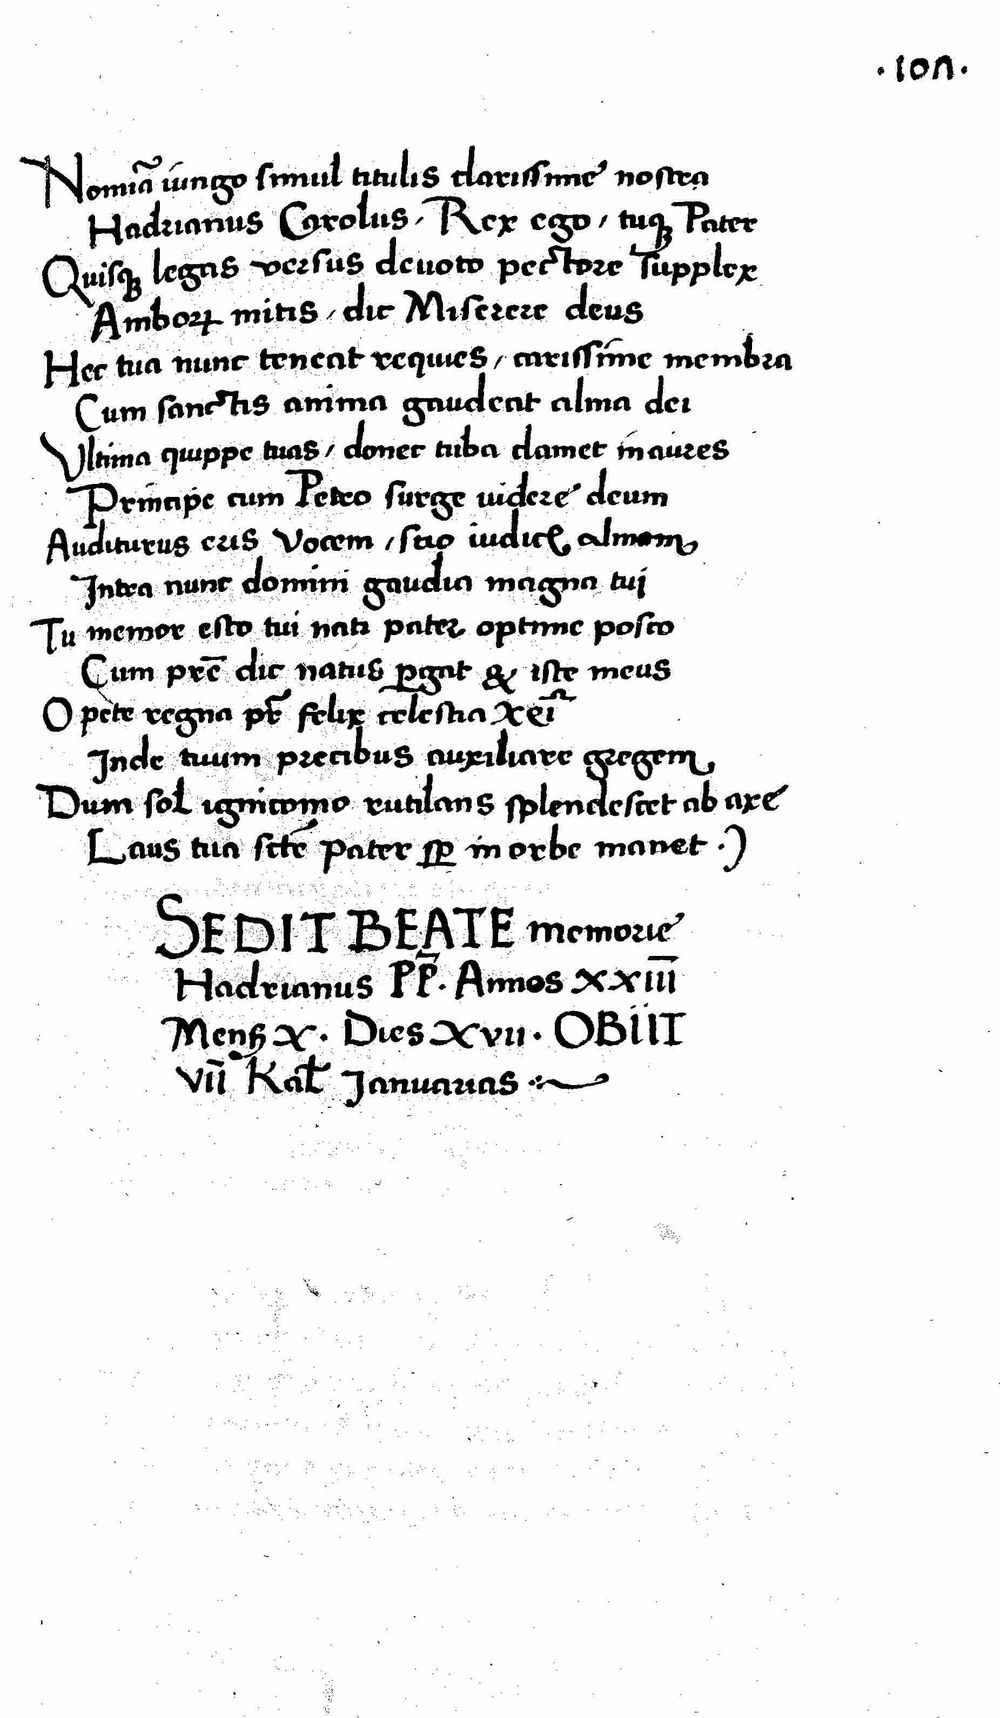 ·107·
Nomīa iungo simul titulis clarissime nostra
Hadrianus Carolus, Rex ego, tuqꝫ Pater
Quisqꝫ legas versus devoto pectore supplex
Amboꝝ mitis, dic Miserere deus
Hec tua nunc teneat requies, carissime membra
Cum sanctis anima gaudeat alma dei
Ultima quippe tuas, donec tuba clamet in aures
Principe cum Petro surge videre deum
Auditurus eris Vocem, scio iudicis almam
Intra nunc domini gaudia magna tui
Tu memor esto tui nati pater optime posco
Cum pr̄e dic natus ꝑgat & iste meus
O pete regna pr̄ felix celestia Xp̄i
Inde tuum precibus auxiliare gregem
Dum sol ignicomo rutilans splendescet ab axe
Laus tua sc̄te pater sꝑ in orbe manet ·)
SEDIT BEATE memorie
Hadrianus PP̄. Annos XXIII
Menẜ X. Dies XVII. OBIIT
VII Kal Januarias